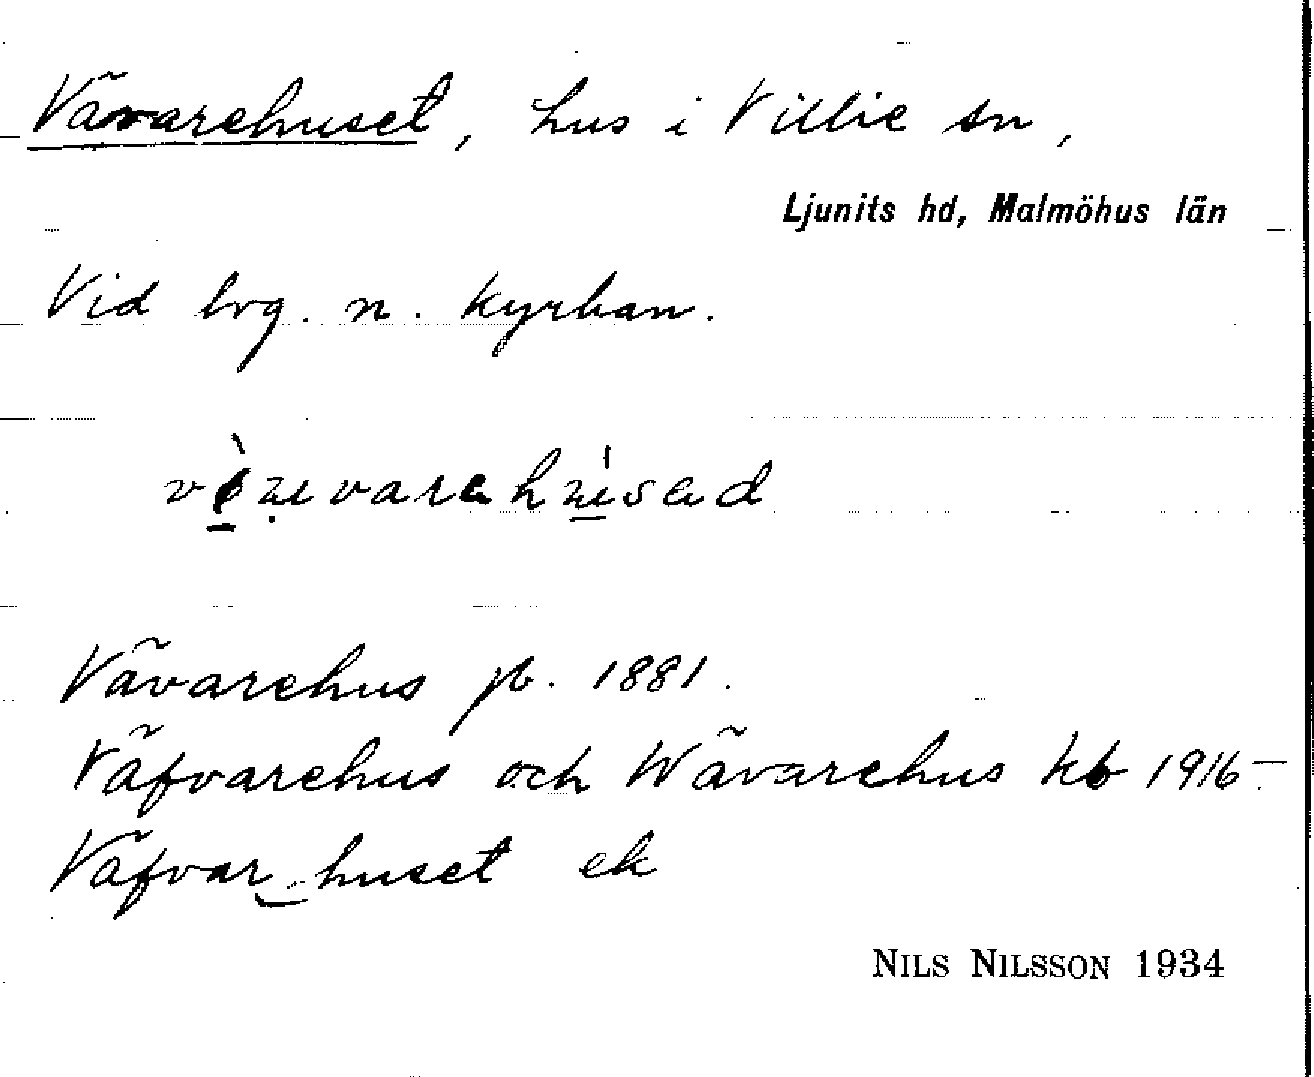 Vävarehuset, hus i Villie sn,
Ljunits hd, Malmöhus län
Vid lvg. n. kyrkan.
Vävarehus jb. 1881.
Väfvarehus och Wävarehus kb 1916-
Väfvarhuset ek
NILS NILSSON 1934